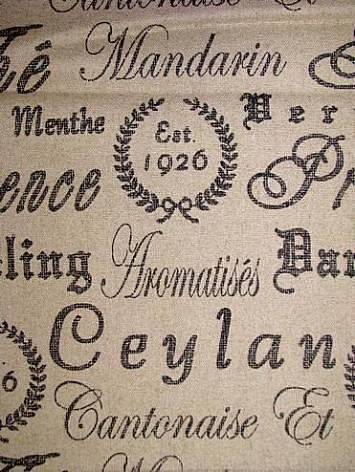 Cantonaise Et
Thé Mandarin
Menthe Est. Ver
1926
ence Pr
ling Aromatisés Dar
Ceylan
6
Cantonaise Et